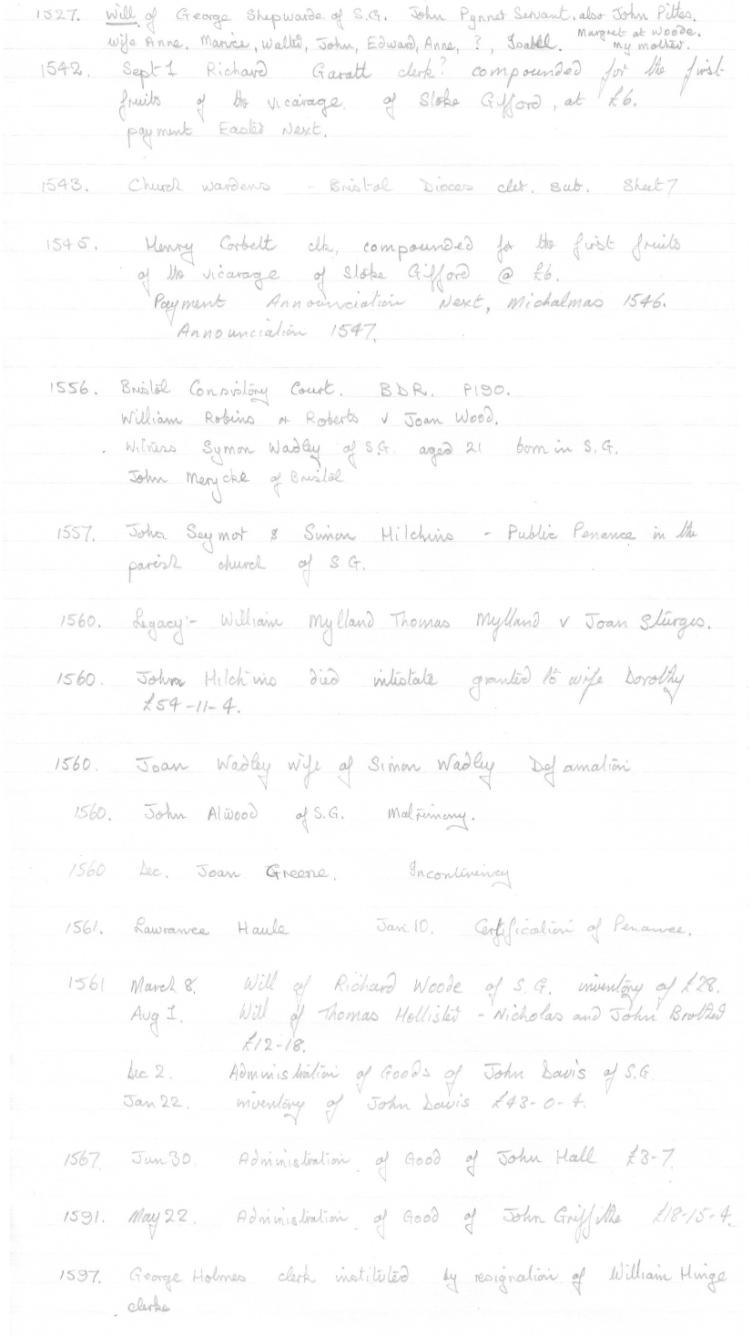 1527. Will of George Shepwarde of S.G. John Pynnet Servant. also John Pittes.
Wife Anne. Marice, Walter, John, Edward, Anne, ?, Isabel. Margret at Woode. my mother.
1542. Sept 1 Richard Garatt clerk? compounded for the first
fruits of the vicarage of Stoke Gifford, at £6.
payment Easter Next.
1543. Church Wardens - Bristol Dioces clet. sub. Sheet 7
1545. Henry Corbett clk, compounded for the first fruits
of the vicarage of Stoke Gifford @ £6.
Payment Announciation Next, Michalmas 1546.
Announciation 1547.
1556. Bristol Consistory Court. BDR. P190.
William Robins or Roberts v Joan Wood.
Witness Symon Wadley of S.G. aged 21 born in S.G.
John Merycke of Bristol
1557. John Seymor & Simon Hitchins - Public Penance in the
parish church of S G.
1560. Legacy:- William Mylland Thomas Mylland v Joan Sturges.
1560. John Hitchins died intestate granted to wife Dorothy
£54-11-4.
1560. Joan Wadley wife of Simon Wadley Defamation
1560. John Atwood of S.G. Matrimony.
1560 Dec. Joan Greene. Incontinency
1561. Lawrance Haule Jan 10. Certification of Penance.
1561 March 8. Will of Richard Woode of S.G. inventory of £28.
Aug 1. Will of Thomas Hollister - Nicholas and John Brother
£12-18.
Dec 2. Administration of Goods of John Davis of S.G
Jan 22. inventory of John Davis £43-0-4.
1567. Jun 30. Administration of Good of John Hall £3-7
1591. May 22. Administration of Good of John Griffithe £18-15-4.
1597. George Holmes clerk instituted by resignation of William Hinge
clerke